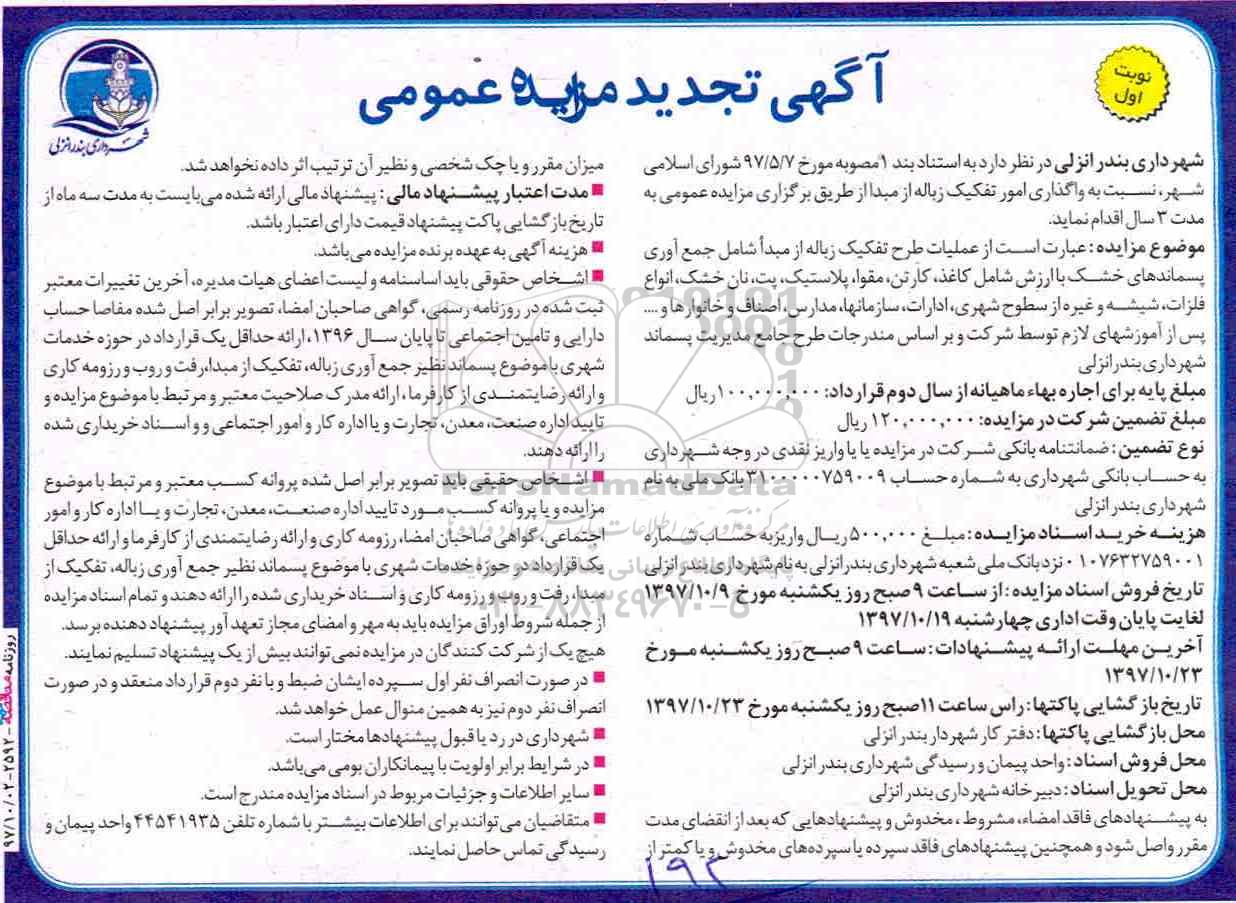 آگهی تجدید مزایده عمومی
نوبت
اول
شهرداری بندرانزلی
شهرداری بندر انزلی در نظر دارد به استناد بند ۱مصوبه مورخ ۹۷/۵/۷ شورای اسلامی
شهر، نسبت به واگذاری امور تفکیک زباله از مبدا از طریق برگزاری مزایده عمومی به
مدت ۳ سال اقدام نماید.
موضوع مزایده : عبارت است از عملیات طرح تفکیک زباله از مبدأ شامل جمع آوری
پسماندهای خشک با ارزش شامل کاغذ، کارتن، مقوا، پلاستیک، پت، نان خشک، انواع
فلزات، شیشه و غیره از سطوح شهری، ادارات، سازمانها، مدارس، اصناف و خانوارها و ....
پس از آموزشهای لازم توسط شرکت و بر اساس مندرجات طرح جامع مدیریت پسماند
شهرداری بندرانزلی
مبلغ پایه برای اجاره بهاء ماهیانه از سال دوم قرارداد: ۱۰۰,۰۰۰,۰۰۰ریال
مبلغ تضمین شرکت در مزایده: ۱۲۰,۰۰۰,۰۰۰ ریال
نوع تضمین : ضمانتنامه بانکی شرکت در مزایده یا یا واریز نقدی در وجه شهرداری
به حساب بانکی شهرداری به شماره حساب ۳۱۰۰۰۰۰۷۵۹۰۰۹ بانک ملی به نام
شهرداری بندر انزلی
هزینه خرید اسناد مزایده : مبلغ ۵۰۰,۰۰۰ ریال واریز به حساب شماره
۰۱۰۷۶۳۲۷۵۹۰۰۱ نزد بانک ملی شعبه شهرداری بندرانزلی به نام شهرداری بندر انزلی
تاریخ فروش اسناد مزایده : از ساعت ۹ صبح روز یکشنبه مورخ ۱۳۹۷/۱۰/۹
لغایت پایان وقت اداری چهارشنبه ۱۳۹۷/۱۰/۱۹
آخرین مهلت ارائه پیشنهادات : ساعت ۹ صبح روز یکشنبه مورخ
۱۳۹۷/۱۰/۲۳
تاریخ بازگشایی پاکتها: راس ساعت ۱۱صبح روز یکشنبه مورخ ۱۳۹۷/۱۰/۲۳
محل بازگشایی پاکتها: دفتر کار شهردار بندر انزلی
محل فروش اسناد : واحد پیمان و رسیدگی شهرداری بندر انزلی
محل تحویل اسناد : دبیرخانه شهرداری بندر انزلی
به پیشنهادهای فاقد امضاء، مشروط ، مخدوش و پیشنهادهایی که بعد از انقضای مدت
مقرر واصل شود و همچنین پیشنهادهای فاقد سپرده یا سپرده‌های مخدوش و یا کمتر از
میزان مقرر و یا چک شخصی و نظیر آن ترتیب اثر داده نخواهد شد.
مدت اعتبار پیشنهاد مالی : پیشنهاد مالی ارائه شده می‌بایست به مدت سه ماه از
تاریخ بازگشایی پاکت پیشنهاد قیمت دارای اعتبار باشد.
هزینه آگهی به عهده برنده مزایده می‌باشد.
اشخاص حقوقی باید اساسنامه و لیست اعضای هیات مدیره، آخرین تغییرات معتبر
ثبت شده در روزنامه رسمی، گواهی صاحبان امضا، تصویر برابر اصل شده مفاصا حساب
دارایی و تامین اجتماعی تا پایان سال ۱۳۹۶، ارائه حداقل یک قرارداد در حوزه خدمات
شهری با موضوع پسماند نظیر جمع آوری زباله، تفکیک از مبدا، رفت و روب و رزومه کاری
و ارائه رضایتمندی از کارفرما، ارائه مدرک صلاحیت معتبر و مرتبط با موضوع مزایده و
تایید اداره صنعت، معدن، تجارت و یا اداره کار و امور اجتماعی و و اسناد خریداری شده
را ارائه دهند.
اشخاص حقیقی باید تصویر برابر اصل شده پروانه کسب معتبر و مرتبط با موضوع
مزایده و یا پروانه کسب مورد تایید اداره صنعت، معدن، تجارت و یا اداره کار و امور
اجتماعی، گواهی صاحبان امضا، رزومه کاری و ارائه رضایتمندی از کارفرما و ارائه حداقل
یک قرارداد در حوزه خدمات شهری با موضوع پسماند نظیر جمع آوری زباله، تفکیک از
مبدا، رفت و روب و رزومه کاری و اسناد خریداری شده را ارائه دهند و تمام اسناد مزایده
از جمله شروط اوراق مزایده باید به مهر و امضای مجاز تعهد آور پیشنهاد دهنده برسد.
هیچ یک از شرکت کنندگان در مزایده نمی‌توانند بیش از یک پیشنهاد تسلیم نمایند.
در صورت انصراف نفر اول سپرده ایشان ضبط و با نفر دوم قرارداد منعقد و در صورت
انصراف نفر دوم نیز به همین منوال عمل خواهد شد.
شهرداری در رد یا قبول پیشنهادها مختار است.
در شرایط برابر اولویت با پیمانکاران بومی می‌باشد.
سایر اطلاعات و جزئیات مربوط در اسناد مزایده مندرج است.
متقاضیان می‌توانند برای اطلاعات بیشتر با شماره تلفن ۴۴۵۴۱۹۳۵ واحد پیمان و
رسیدگی تماس حاصل نمایند.
ParsNamadData
۰۲۱-۸۸۳۴۹۶۷۰-۵
روزنامه مناقصه - ۲۵۹۲ - ۹۷/۱۰/۰۲
۱۹۲